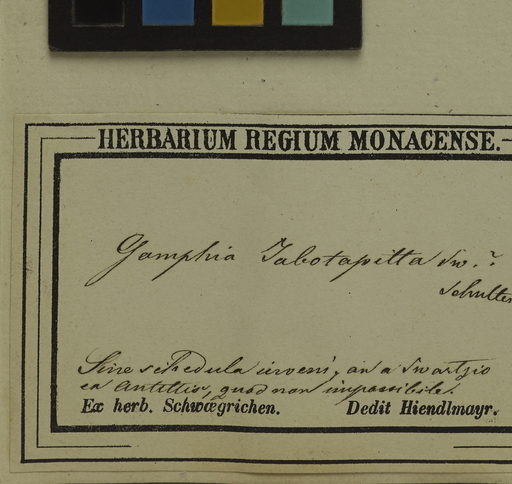 HERBARIUM REGIUM MONACENSE.
Gomphia Jabotapitta Sw.?
Schultes
Sine schedula inveni, an a Swartzio
ex Antillis, quod non impossibile.
Ex herb. Schwægrichen. Dedit Hiendlmayr.